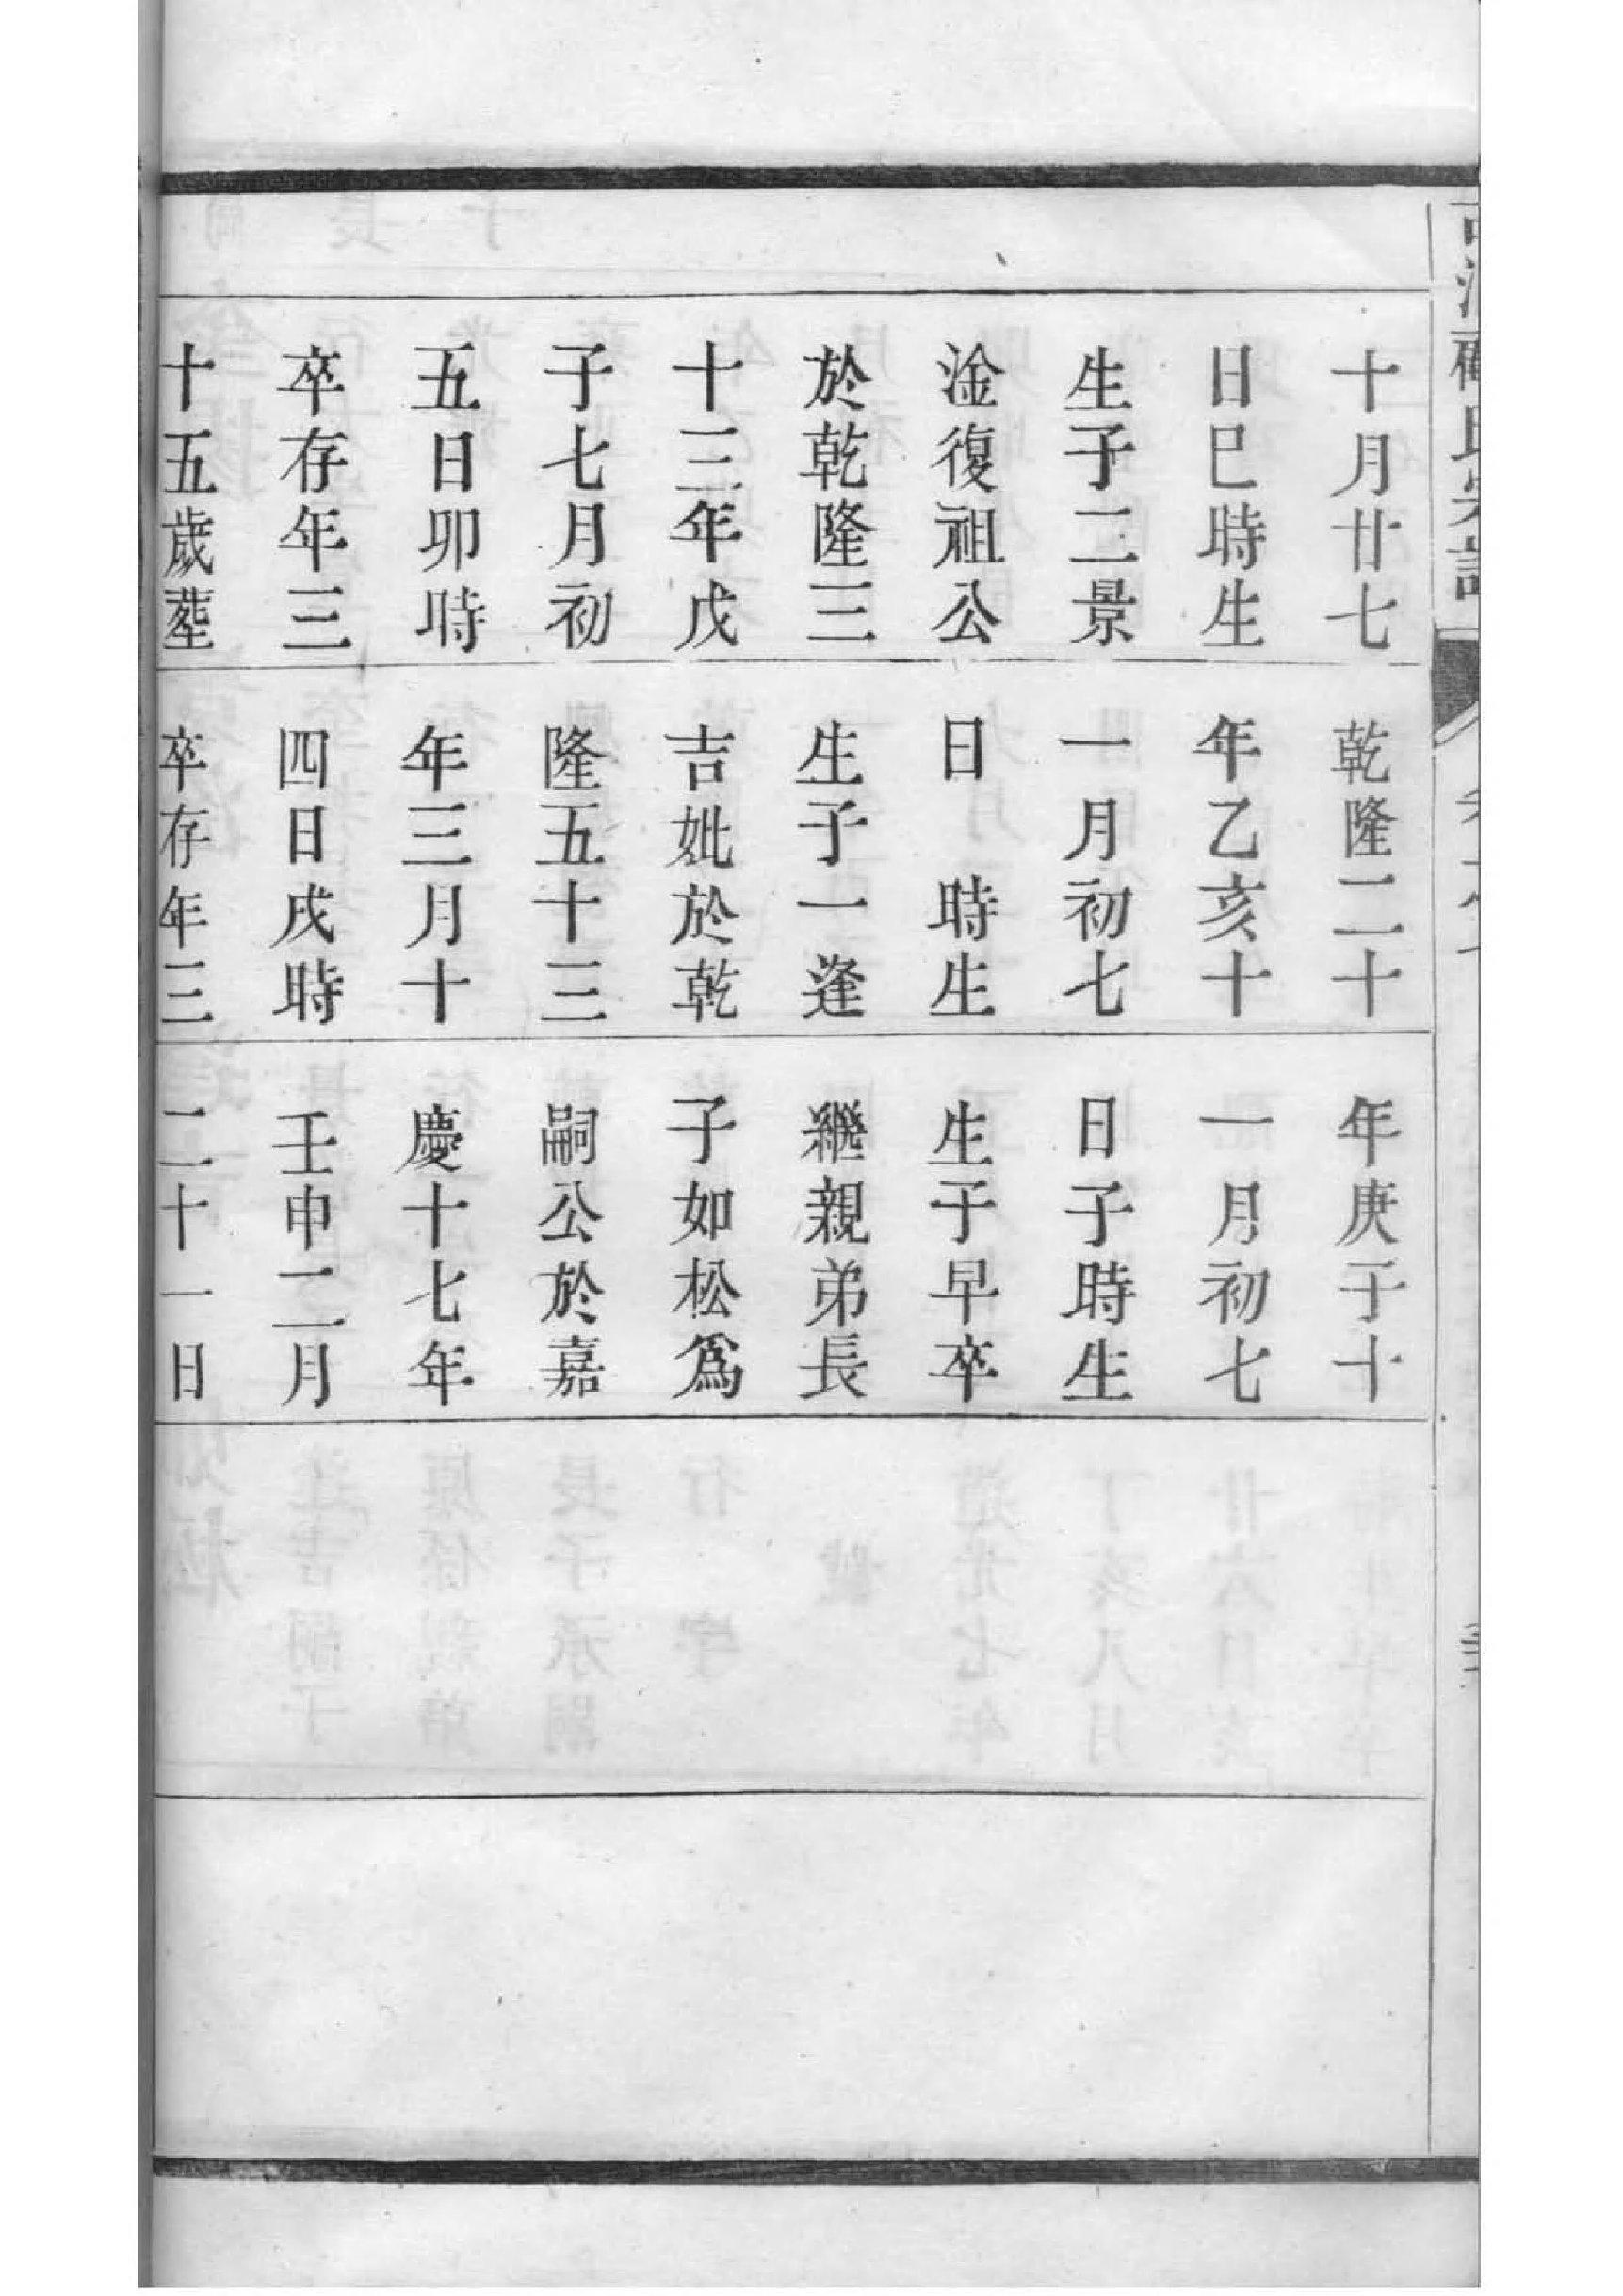 十月廿七
日巳時生
生子二景
淦復祖公
於乾隆三
十三年戊
子七月初
五日卯時
卒存年三
十五歲塟
乾隆二十
年乙亥十
一月初七
日　時生
生子一逢
吉妣於乾
隆五十三
年三月十
四日戌時
卒存年三
年庚于十
一月初七
日子時生
生于早卒
繼親弟長
子如松爲
嗣公於嘉
慶十七年
壬申二月
二十一日